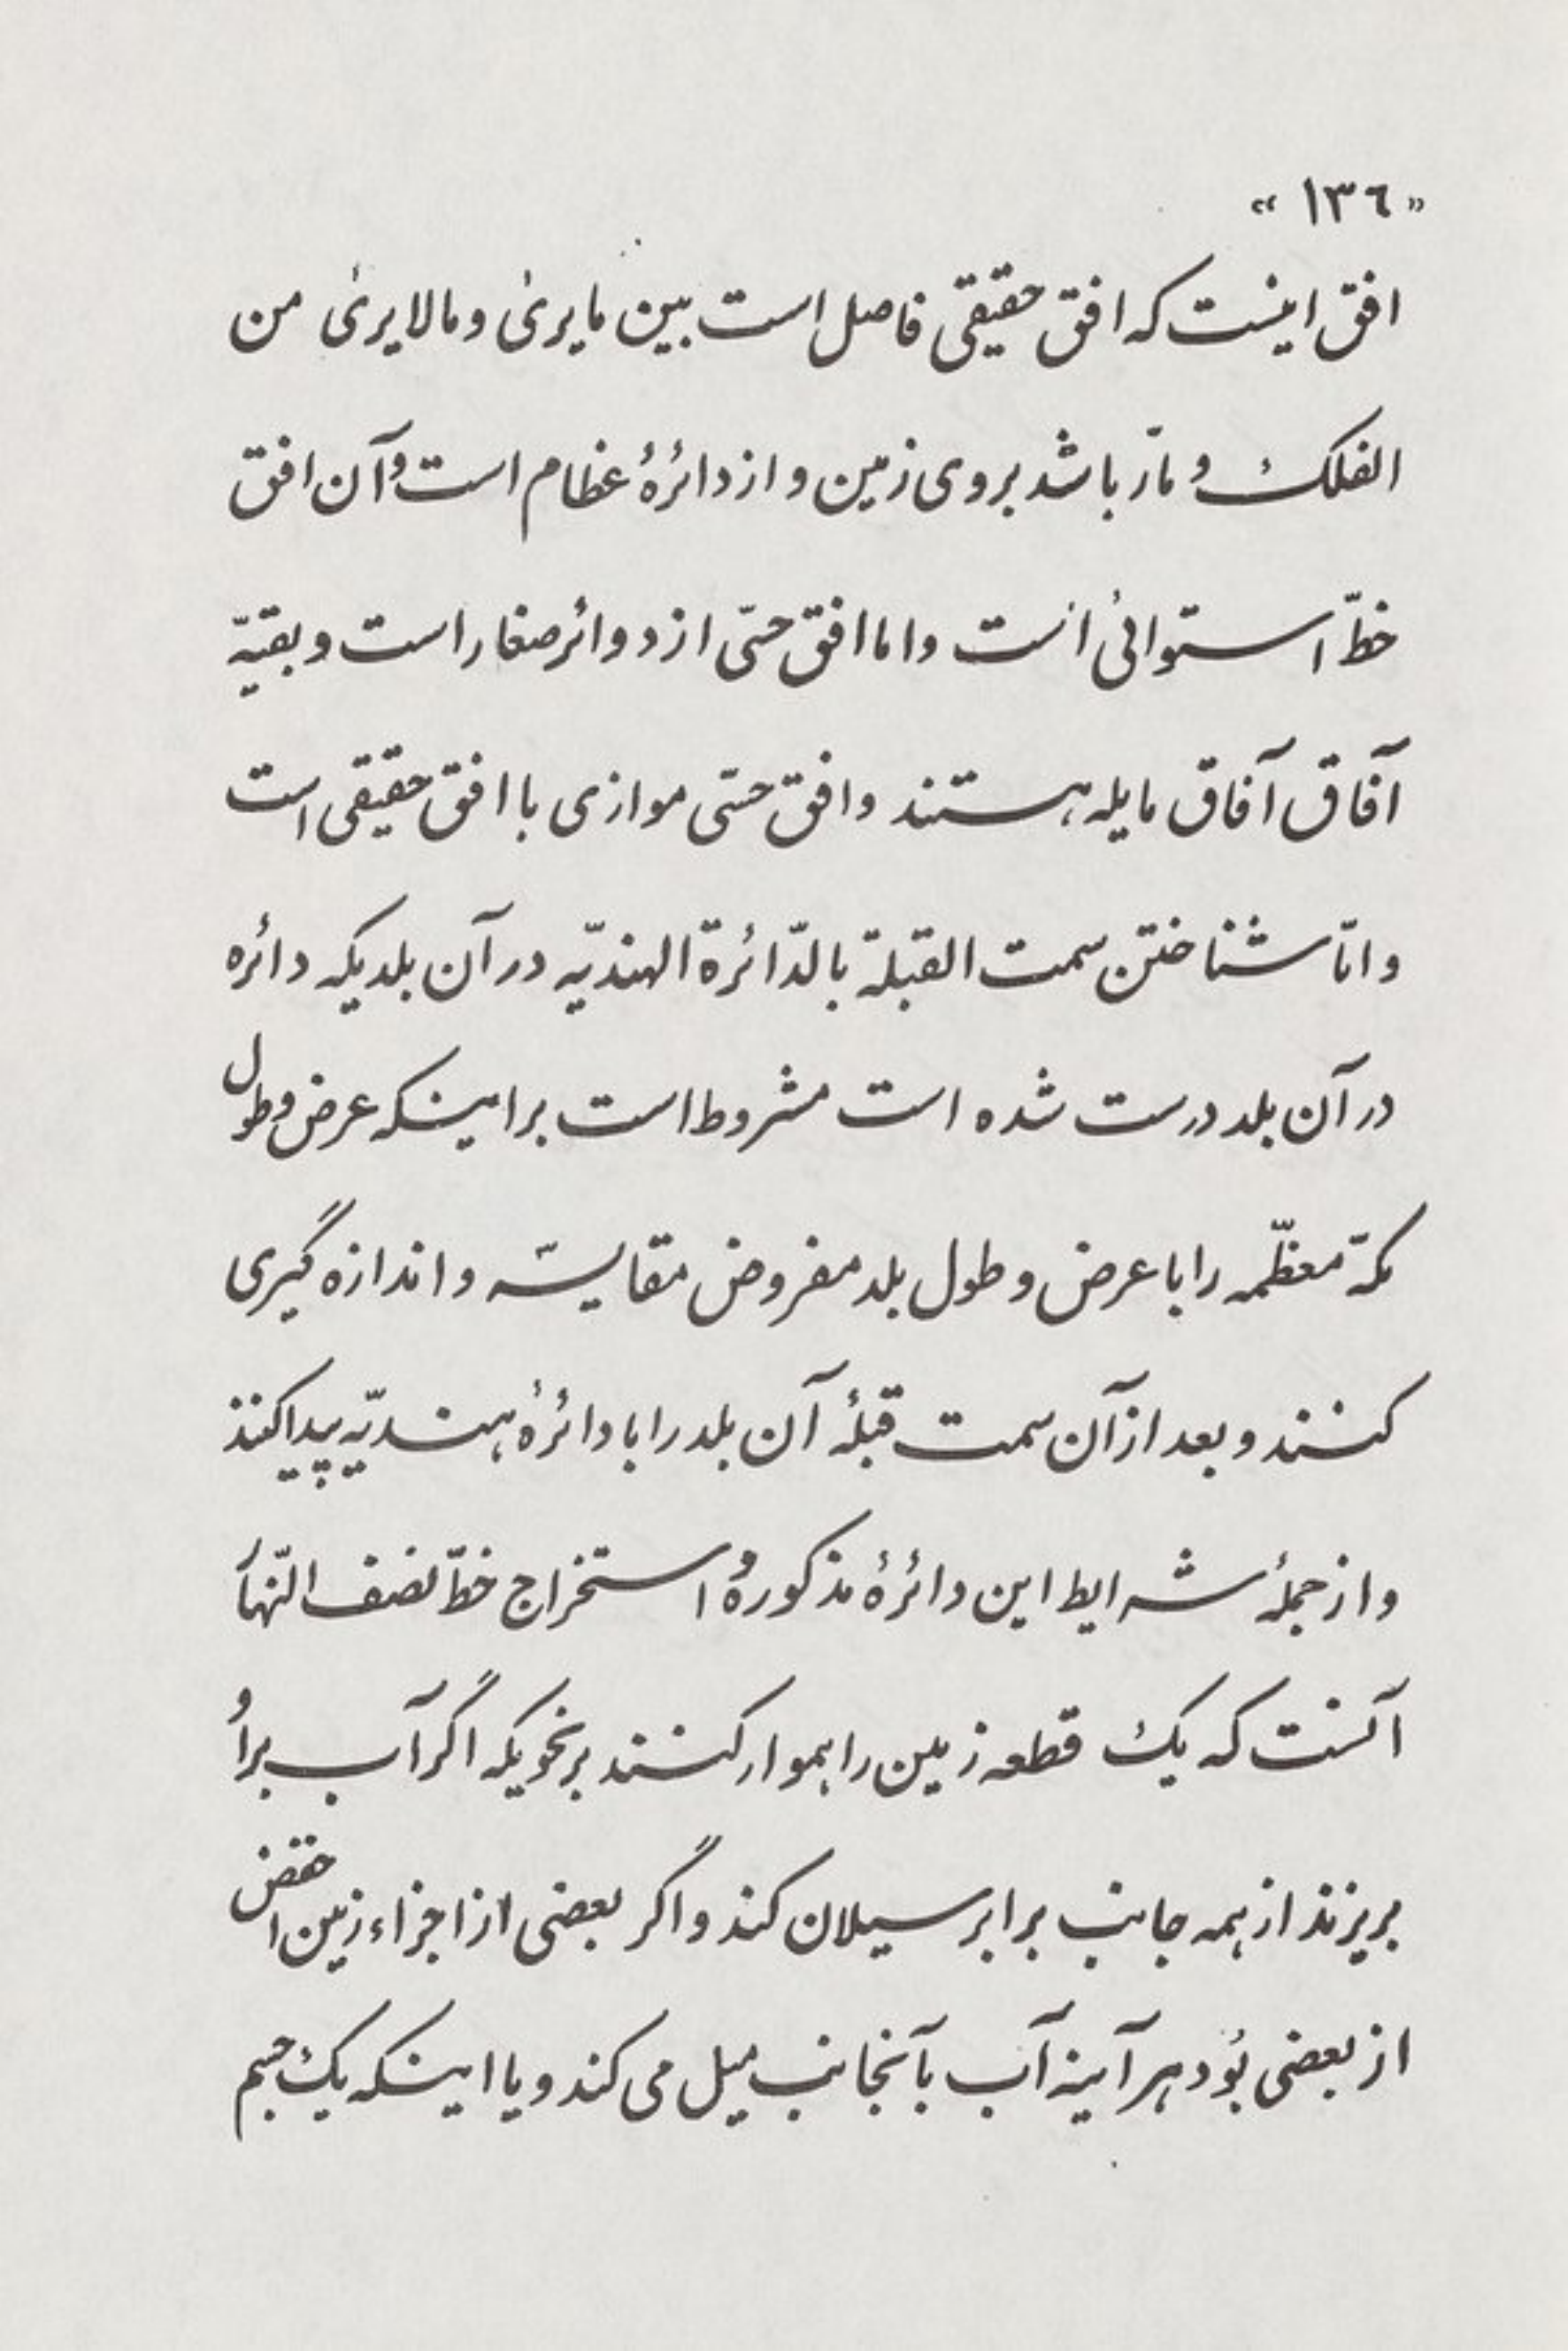 «١٣٦»
افق اینست که افق حقیقی فاصل است بین مایریٰ ومالایریٰ من
الفلک و مارّ باشد بروی زمین و از دائرهٔ عظام است وآن افق
خطّ استوائی است واما افق حسّی از دوائر صغار است و بقیّه
آفاق آفاق مایله هستند وافق حسّی موازی با افق حقیقی است
وامّا شناختن سمت القبلة بالدّائرة الهندیّه در آن بلدیکه دائره
در آن بلد درست شده است مشروط است براینکه عرض وطول
مکّهٔ معظّمه را با عرض و طول بلد مفروض مقایسه و اندازه گیری
کنند و بعد از آن سمت قبلهٔ آن بلد را با دائرهٔ هندیّه پیدا کنند
و از جملهٔ شرایط این دائرهٔ مذکوره و استخراج خطّ نصف النّهار
آنست که یک قطعه زمین را هموار کنند بر نحویکه اگر آب بر او
بریزند از همه جانب برابر سیلان کند و اگر بعضی از اجزاء زمین اخفض
از بعضی بُود هر آینه آب بآنجانب میل می کند و یا اینکه یک جسم